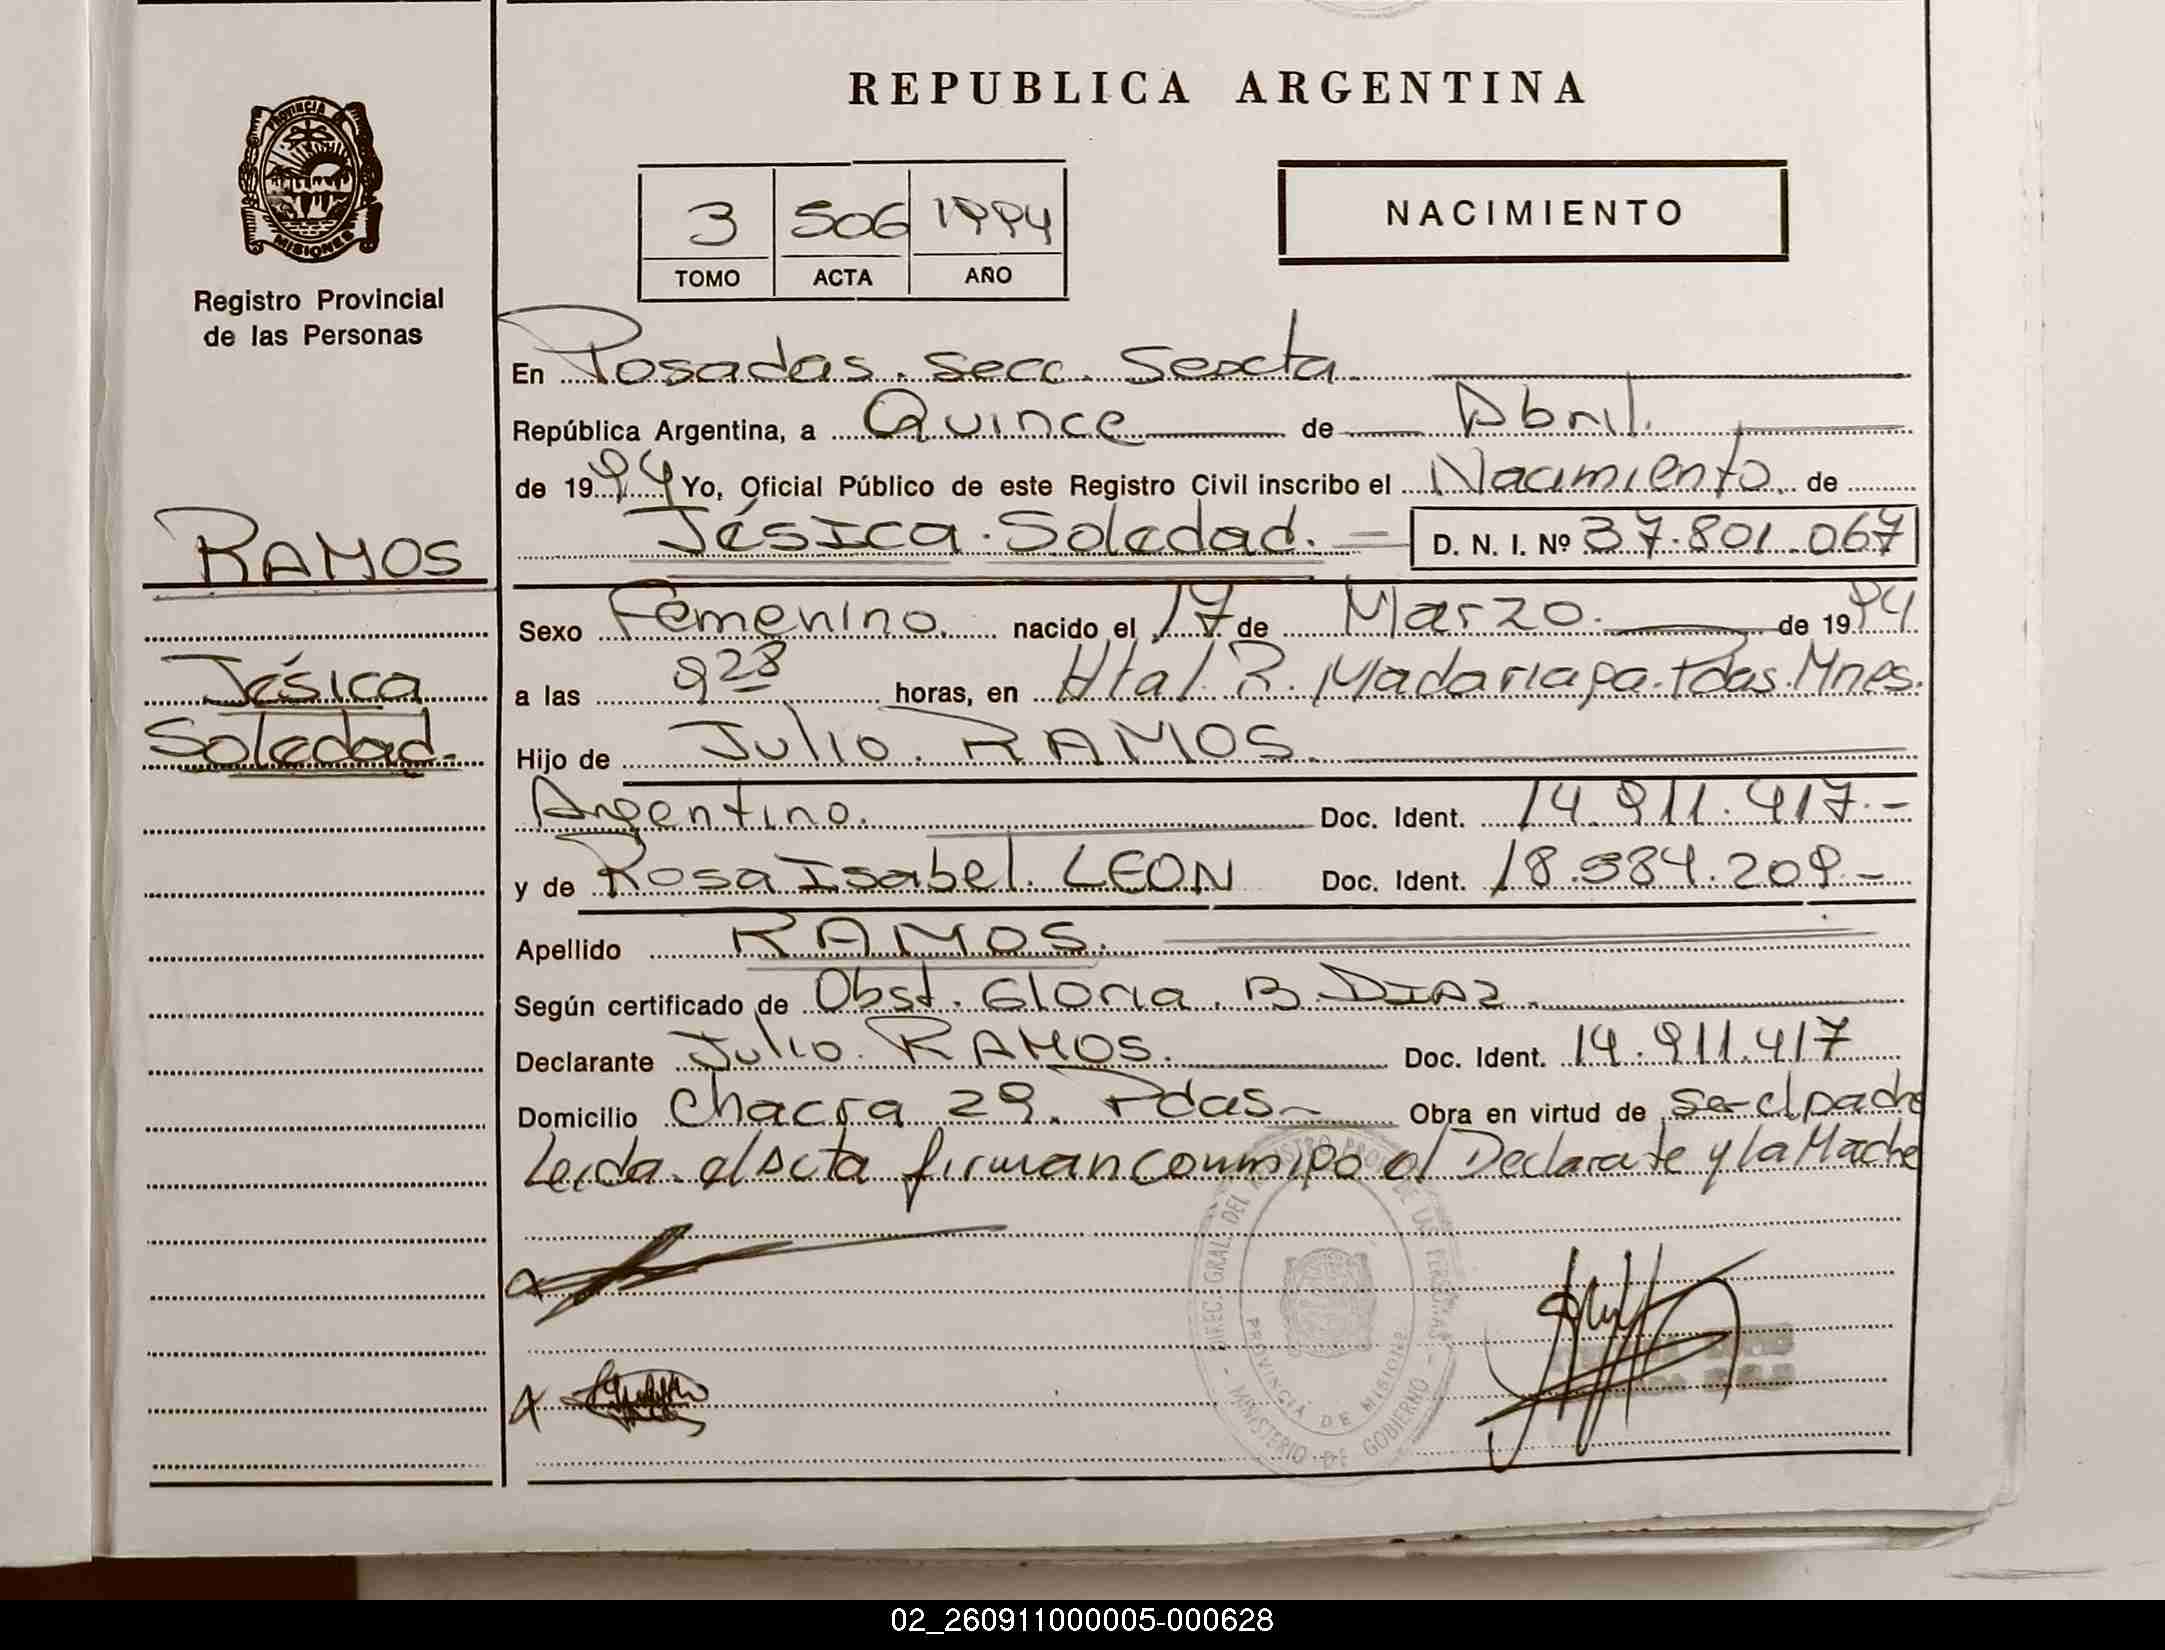 REPUBLICA ARGENTINA
PROVINCIA
MISIONES
Registro Provincial
de las Personas
3 506 1994
TOMO ACTA AÑO
NACIMIENTO
En Posadas. Secc. Sexta
República Argentina, a Quince de Abril.
de 1994 Yo, Oficial Público de este Registro Civil inscribo el Nacimiento. de
Jésica. Soledad. D. N. I. Nº 37.801.067
RAMOS
Jésica
Soledad.
Sexo Femenino. nacido el 17 de Marzo. de 1994
a las 9 28 horas, en Htal. R. Madariaga. Pdas. Mnes.
Hijo de Julio. RAMOS.
Argentino. Doc. Ident. 14.911.417.-
y de Rosa Isabel. LEON Doc. Ident. 18.584.209.-
Apellido RAMOS.
Según certificado de Obst. Gloria. B. DIAZ.
Declarante Julio. RAMOS. Doc. Ident. 14.911.417
Domicilio Chacra 29. Pdas- Obra en virtud de Ser el padre
Leida. el Acta firman conmigo el Declarate y la Madre
DIREC. GRAL. DEL REGISTRO PROV. DE LAS PERSONAS - MINISTERIO DE GOBIERNO -
PROVINCIA DE MISIONES
02_260911000005-000628